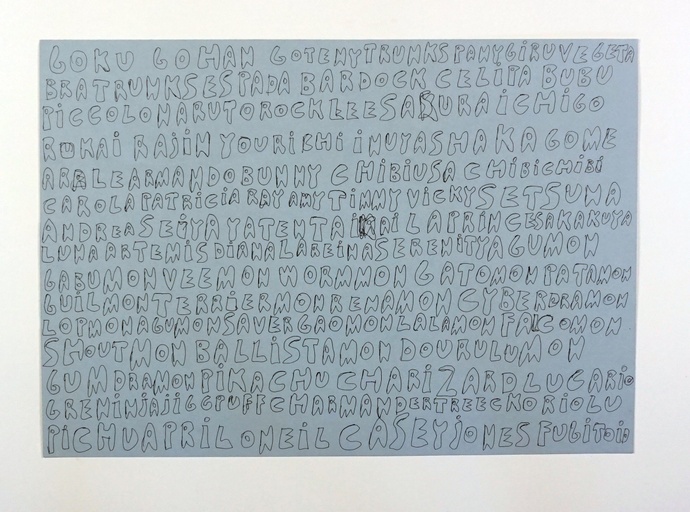 GOKU GOHAN GOTENYTRUNKSPANYGIRUVEGETA
BRATRUNKSESPADA BARDOCK CELIPA BUBU
PICCOLONARUTOROCKLEESAKURAICHIGO
RUKAI RAJIN YOURICHI INUYASHAKAGOME
ARALEARMANDOBUNNY CHIBIUSA CHIBICHIBI
CAROLAPATRICIA RAY AMYTIMMY VICKYSETSUNA
ANDREASEIYAYATENTAIKAI LAPRINCESAKAKUYA
LUNAARTEMISDIANALAREINASERENITYAGUMON
GABUMONVEEMON WORMMON GATOMONPATAMON
GUILMONTERRIERMONRENAMONCYBERDRAMON
LOPMONAGUMONSAVERGAOMONLALAMON FALCOMON
SHOUTMON BALLISTAMON DOURULUMON
GUMDRAMONPIKACHU CHARIZARDLUCARIO
GRENINJAJIGGPUFFCHARMANDERTREECKORIOLU
PICHUAPRIL ONEIL CASEYJONESFUGITOID